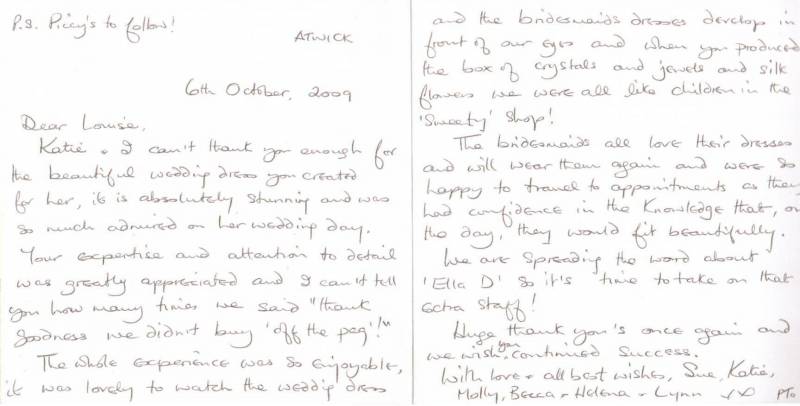 P.S. Piccy's to follow!
ATWICK
6th October, 2009
Dear Louise,
Katie & I can't thank you enough for
the beautiful wedding dress you created
for her, it is absolutely stunning and was
so much admired on her wedding day.
Your expertise and attention to detail
was greatly appreciated and I can't tell
you how many times we said "thank
goodness we didn't buy 'off the peg'!"
The whole experience was so enjoyable,
it was lovely to watch the wedding dress
and the bridesmaids dresses develop in
front of our eyes and when you produced
the box of crystals and jewels and silk
flowers we were all like children in the
'Sweety' Shop!
The bridesmaids all love their dresses
and will wear them again and were so
happy to travel to appointments as they
had confidence in the knowledge that, on
the day, they would fit beautifully.
We are spreading the word about
'Ella D' so it's time to take on that
extra staff!
Huge thank you's once again and
we wish you continued success.
With love & all best wishes, Sue, Katie,
Molly, Becca & Helena & Lynn xx PTO